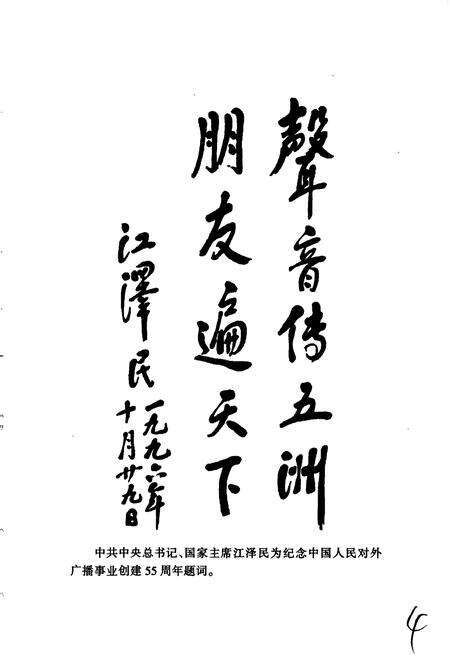 聲音傳五洲
朋友遍天下
江澤民
一九九六年
十月廿九日
中共中央总书记、国家主席江泽民为纪念中国人民对外
广播事业创建55周年题词。
4